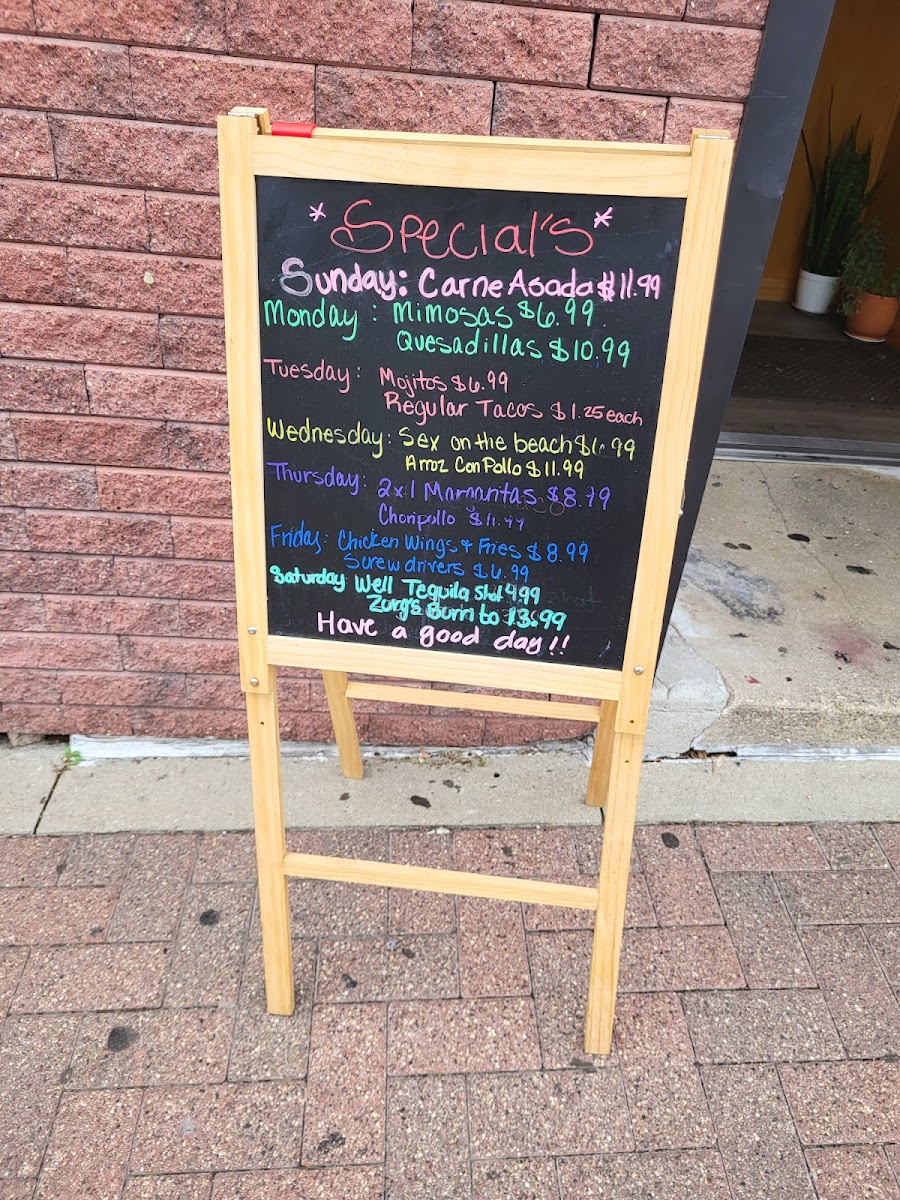 * Special's *
Sunday: Carne Asada $11.99
Monday: Mimosas $6.99
Quesadillas $10.99
Tuesday: Mojitos $6.99
Regular Tacos $1.25 each
Wednesday: Sex on the beach $6.99
Arroz Con Pollo $11.99
Thursday: 2x1 Margaritas $8.79
Choripollo $11.99
Friday: Chicken Wings + Fries $8.99
Surewdrivers $6.99
Saturday: Well Tequila Shot 4.99
Zurg's Burrito 13.99
Have a good day!!